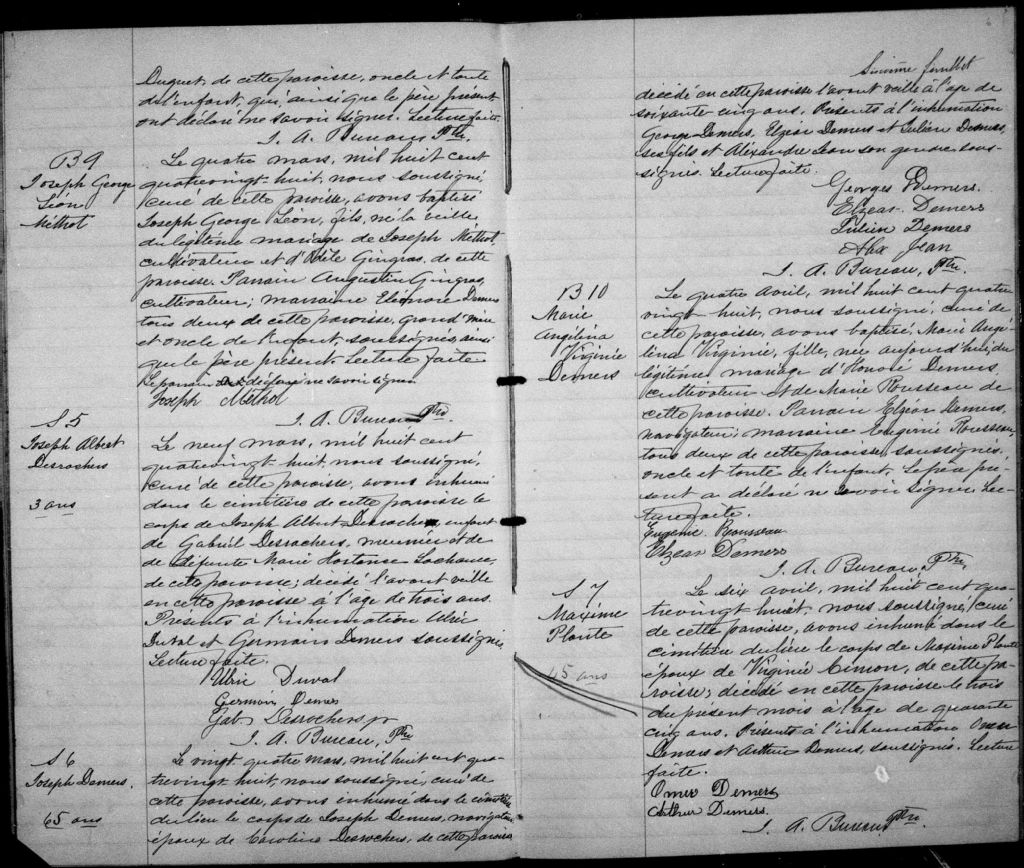 Duquet de cette paroisse, oncle et tante
de l'enfant, qui, ainsi que le père présent,
ont déclaré ne savoir signer. Lecture faite.
J. A. Bureau, Ptre
B 9
Joseph George
Léon
Methot
Le quatre mars, mil huit cent
quatrevingt-huit, nous soussigné,
curé de cette paroisse, avons baptisé
Joseph George Léon, fils, né la veille
du légitime mariage de Joseph Methot,
cultivateur et d'Odèle Gingras, de cette
paroisse. Parrain Augustin Gingras,
cultivateur; marraine Eléonore Demers
tous deux de cette paroisse, grand'mère
et oncle de l'enfant, soussignés, ainsi
que le père présent. Lecture faite
Le parrain a déclaré ne savoir signer
Joseph Methot
J. A. Bureau Ptre.
S 5
Joseph Albert
Desrochers
3 ans
Le neuf mars, mil huit cent
quatrevingt-huit, nous soussigné,
curé de cette paroisse, avons inhumé
dans le cimetière de cette paroisse le
corps de Joseph Albert Desrochers, enfant
de Gabriel Desrochers, meunier et de
de défunte Marie Hortense Lachance,
de cette paroisse; décédé l'avant veille
en cette paroisse à l'âge de trois ans.
Présents à l'inhumation Ulric
Duval et Germain Demers soussignés,
Lecture faite.
Ulric Duval
Germain Demers
Gab Desrochers jr
J. A. Bureau, Ptre
S 6
Joseph Demers.
65 ans
Le vingt quatre mars, mil huit cent qua-
trevingt huit, nous soussigné, curé de
cette paroisse, avons inhumé dans le cimetière
du lieu le corps de Joseph Demers, navigateur
époux de Caroline Desrochers, de cette paroisse
Sixième feuillet
décédé en cette paroisse l'avant veille à l'âge de
soixante cinq ans. Présents à l'inhumation
George Demers, Elzéar Demers et Julien Demers,
ses fils et Alexandre Jean son gendre sous-
signés. Lecture faite.
Georges Demers.
Elzear Demers
Julien Demers
Alex Jean
J. A. Bureau, Ptre.
B 10
Marie
Angélina
Virginie
Demers
Le quatre Avril, mil huit cent quatre
vingt-huit, nous soussigné, curé de
cette paroisse, avons baptisé, Marie Angé-
lina Virginie, fille, née aujourd'hui, du
légitime mariage d'Honoré Demers,
cultivateur et de Marie Rousseau de
cette paroisse. Parrain Elzéar Demers,
navigateur; marraine Eugénie Rousseau,
tous deux de cette paroisse, soussignés,
oncle et tante de l'enfant. Le père pré-
sent a déclaré ne savoir signer. Lec-
ture faite.
Eugenie Rousseau
Elzear Demers
J. A. Bureau, Ptre,
S 7
Maxime
Plante
45 ans
Le six avril, mil huit cent qua-
trevingt huit, nous soussigné, curé
de cette paroisse, avons inhumé dans le
cimetière du lieu le corps de Maxime Plante
époux de Virginie Cinson, de cette pa-
roisse; décédé en cette paroisse le trois
du présent mois à l'âge de quarante
cinq ans. Présents à l'inhumation Omer
Demers et Arthur Demers, soussignés. Lecture
faite.
Omer Demers
Arthur Demers.
J. A. Bureau, Ptre.